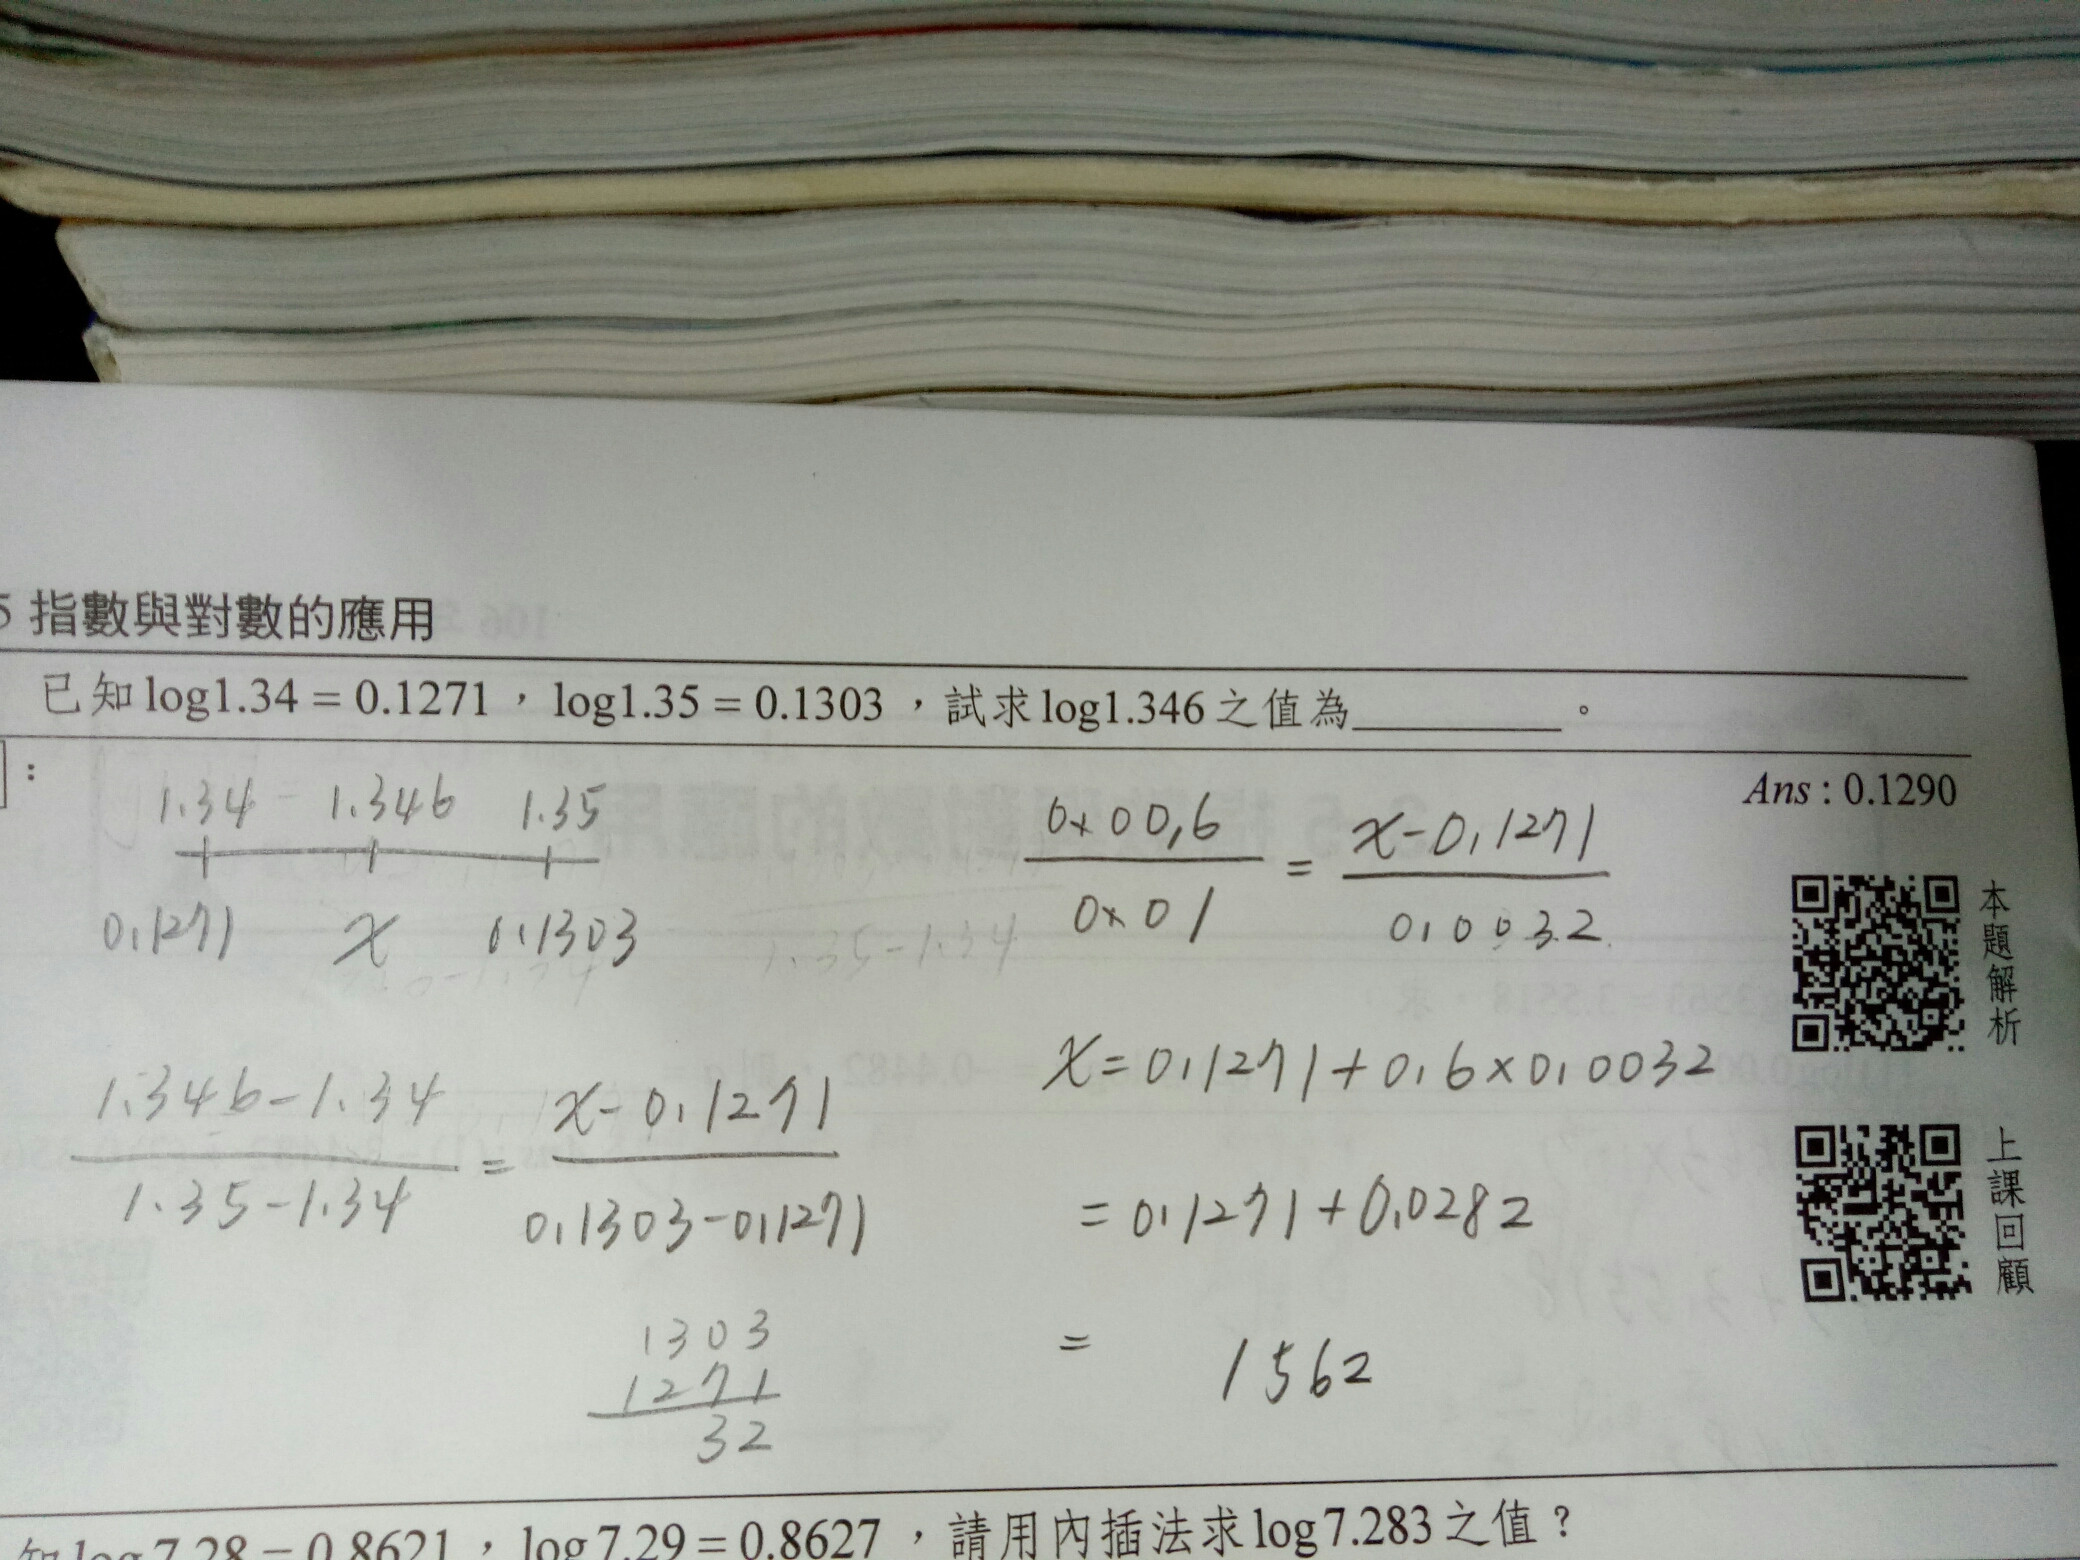 5 指數與對數的應用
已知 log1.34 = 0.1271，log1.35 = 0.1303，試求 log1.346 之值為________。
：
Ans : 0.1290
1.34 1.346 1.35
0.1271 x 0.1303
1.346-1.34 / 1.35-1.34 = x-0.1271 / 0.1303-0.1271
1303
1271
32
0.00.6 / 0.01 = x-0.1271 / 0.0032
x=0.1271+0.6×0.0032
=0.1271+0.0282
= 1562
本題解析
上課回顧
知 log7.28 = 0.8621，log7.29 = 0.8627，請用內插法求 log7.283 之值？